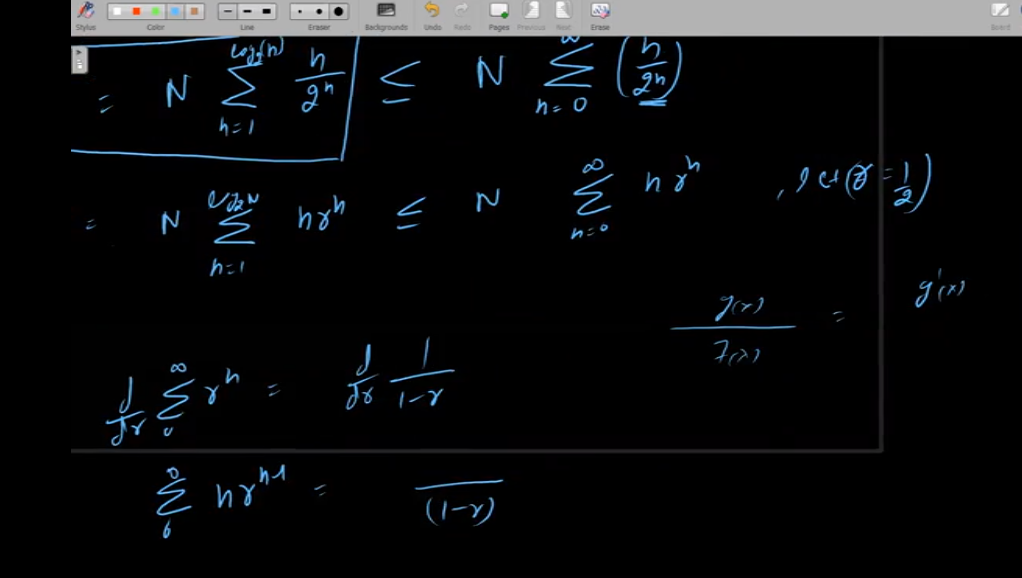 Stylus Color Line Eraser Backgrounds Undo Redo Pages Previous Next Erase Board
= N ∑_{n=1}^{log₂(n)} n/2ⁿ ≤ N ∑_{n=0}^{∞} (n/2ⁿ)
= N ∑_{n=1}^{log₂N} nrⁿ ≤ N ∑_{n=0}^{∞} nrⁿ , let (r = 1/2)
g(x)/f(x) = g'(x)
d/dr ∑_{0}^{∞} rⁿ = d/dr 1/(1-r)
∑_{0}^{∞} nr^{n-1} = /(1-r)